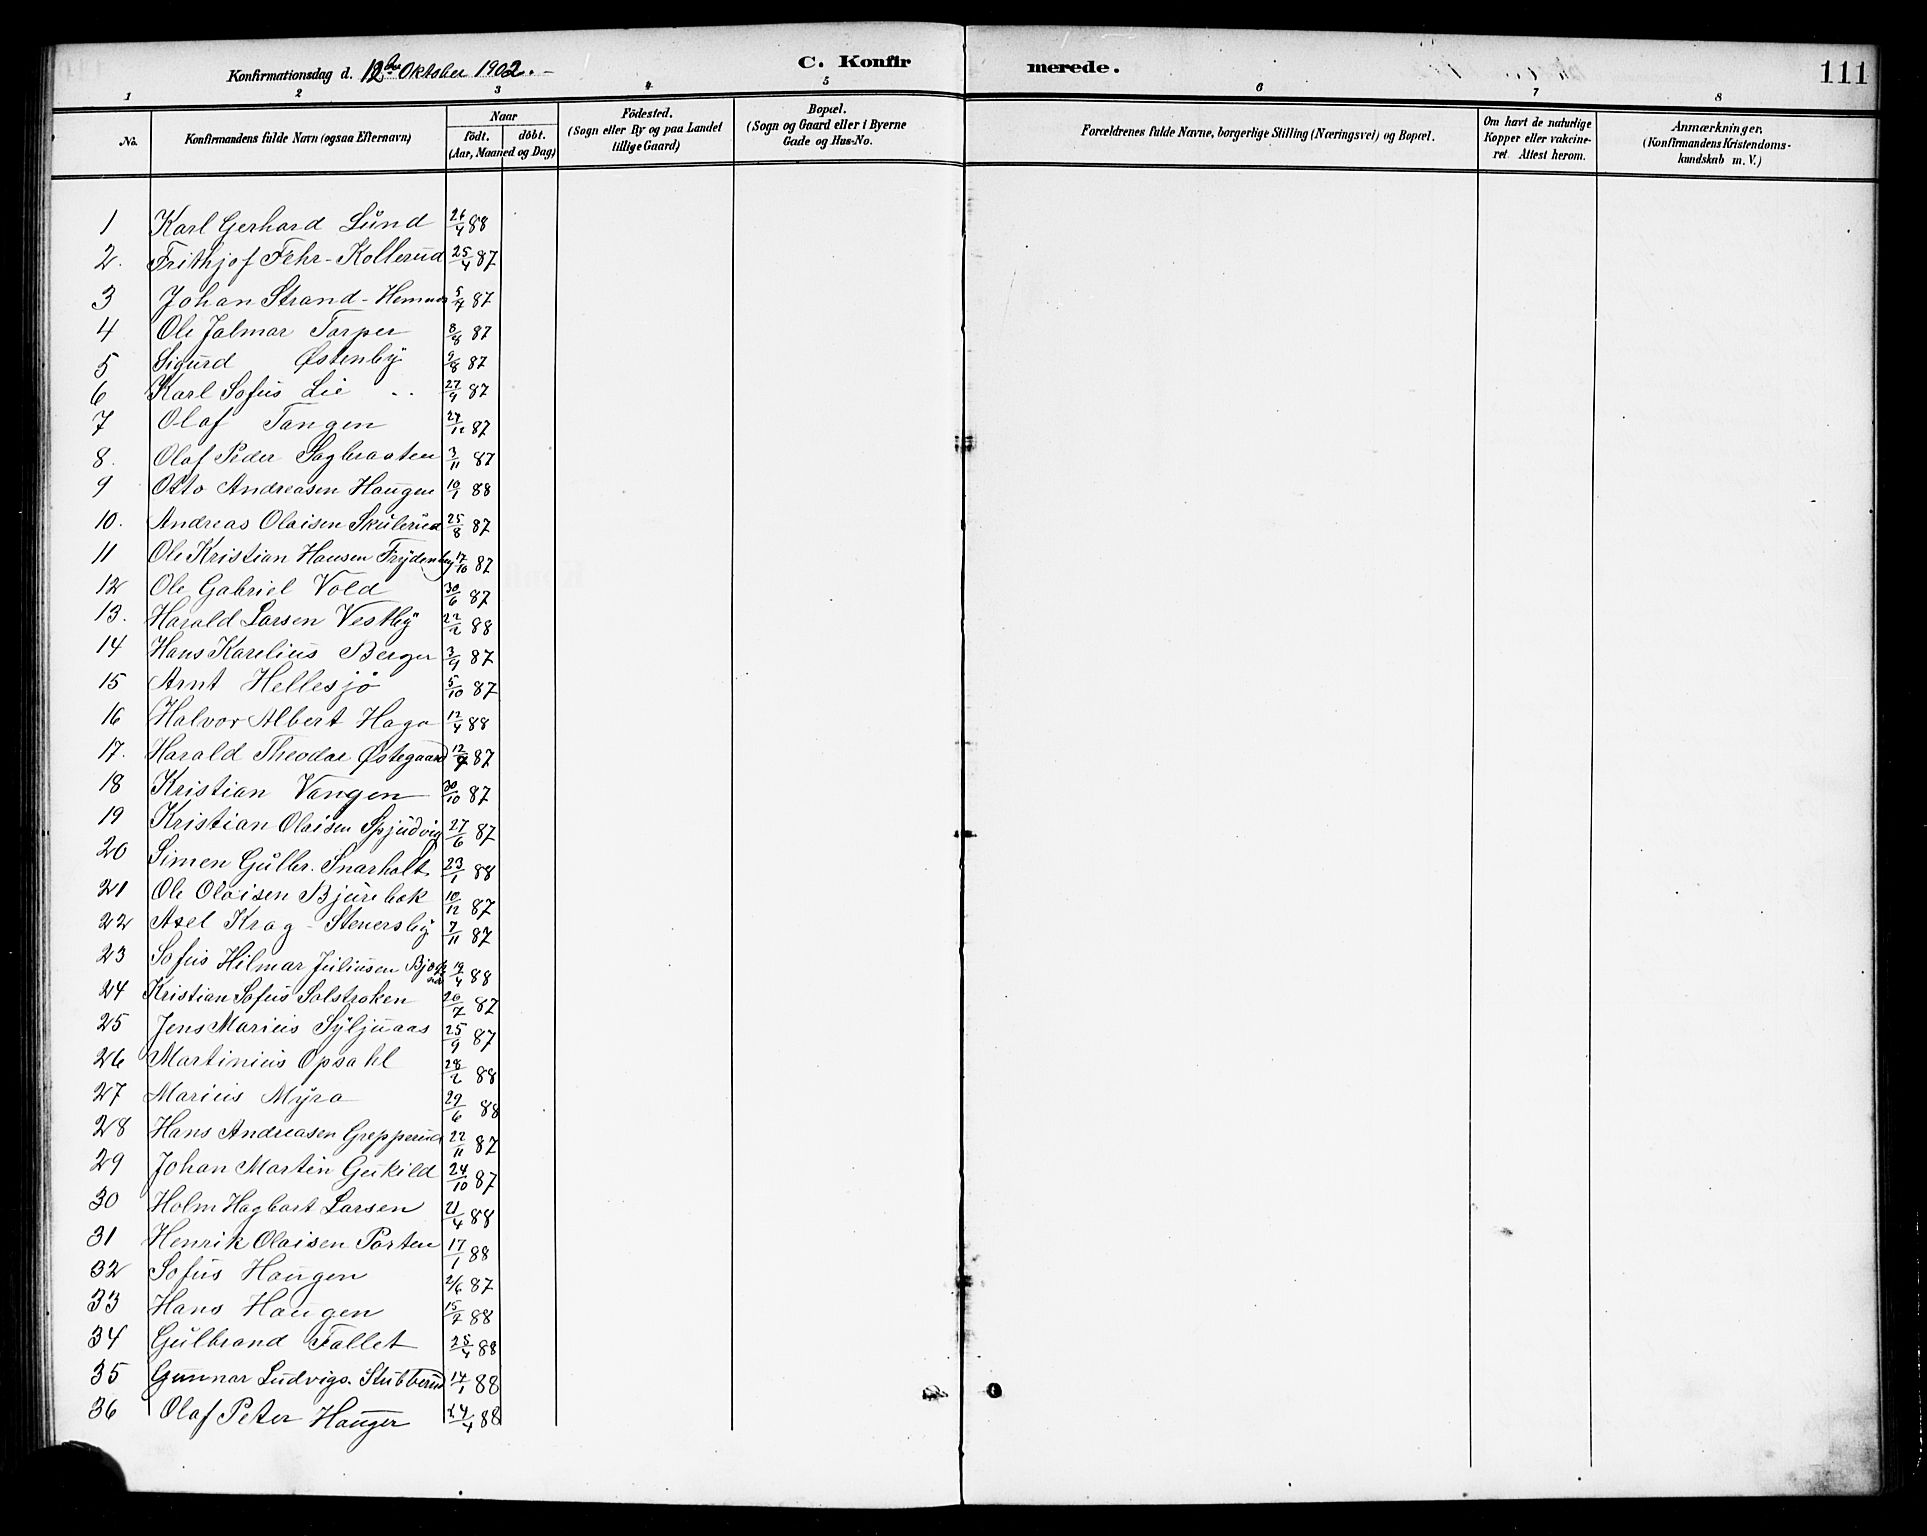 Konfirmationsdag d. 12te Oktober 1902. -
C. Konfirmerede.
111
1 2 3 4 5 6 7 8
No.
Konfirmandens fulde Navn (ogsaa Efternavn)
Naar
födt. döbt.
(Aar, Maaned og Dag)
Födested.
(Sogn eller By og paa Landet
tillige Gaard)
Bopæl.
(Sogn og Gaard eller i Byerne
Gade og Hus-No.
Forældrenes fulde Navne, borgerlige Stilling (Næringsvei) og Bopæl.
Om havt de naturlige
Kopper eller vakcine-
ret. Attest herom.
Anmærkninger,
(Konfirmandens Kristendoms-
kundskab m. V.)
1 Karl Gerhard Lund 26/4 88
2. Frithjof Fehr-Kollerud 25/4 87
3 Johan Strand-Hemnes 5/7 87
4 Ole Jalmar Torper 8/8 87
5 Sigurd Østenby 9/8 87
6 Karl Sofus Lie 27/9 87
7 Olaf Tangen 27/12 87
8. Olaf Peder Sagbraaten 3/11 87
9 Otto Andreasen Haugen 10/1 88
10. Andreas Olaisen Skulerud 25/8 87
11 Ole Kristian Hansen Frydenberg 17/10 87
12 Ole Gabriel Vold 30/6 87
13. Harald Larsen Vestby 22/2 88
14 Hans Karelius Berger 3/9 87
15 Arnt Hellesjö 5/10 87
16 Halvor Albert Haga 12/4 88
17. Harald Theodor Østegaard 12/9 87
18 Kristian Vangen 30/10 87
19 Kristian Olaisen Spjudvig 27/6 87
20 Simen Gulbr. Snarholt 23/1 88
21 Ole Olaisen Bjurebak 10/12 87
22 Axel Krag - Stenersby 7/11 87
23 Sofus Hilmar Juliusen 19/4 88
24 Kristian Sofus Solstroken 26/7 87
25 Jens Marius Syljuaas 25/9 87
26 Martinius Opsahl 28/2 88
27 Marius Myra 29/6 88
28 Hans Andreasen Grepperud 22/11 87
29 Johan Martin Gukild 24/10 87
30 Holm Hagbart Larsen 21/4 88
31 Henrik Olaisen Porten 17/1 88
32 Sofus Haugen 2/6 87
33 Hans Haugen 15/7 88
34 Gulbrand Fallet 25/4 88
35 Gunnar Ludvigs. Stubberud 14/1 88
36 Olaf Peter Hauger 24/4 88